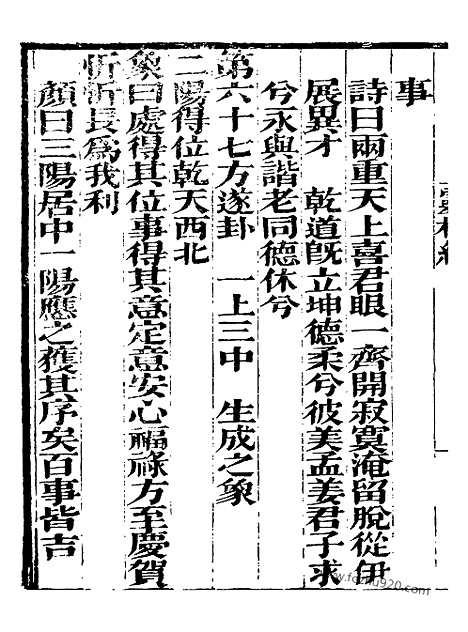 事
詩曰兩重天上喜君眼一齊開寂寞淹留脫從伊
展異才　乾道旣立坤德柔兮彼美孟姜君子求
兮永與諧老同德休兮
第六十七方遂卦　一上三中　生成之象
二陽得位乾天西北
象曰處得其位事得其意定意安心福祿方至慶賀
忻忻長爲我利
顏曰三陽居中一陽應之獲其序矣百事皆吉